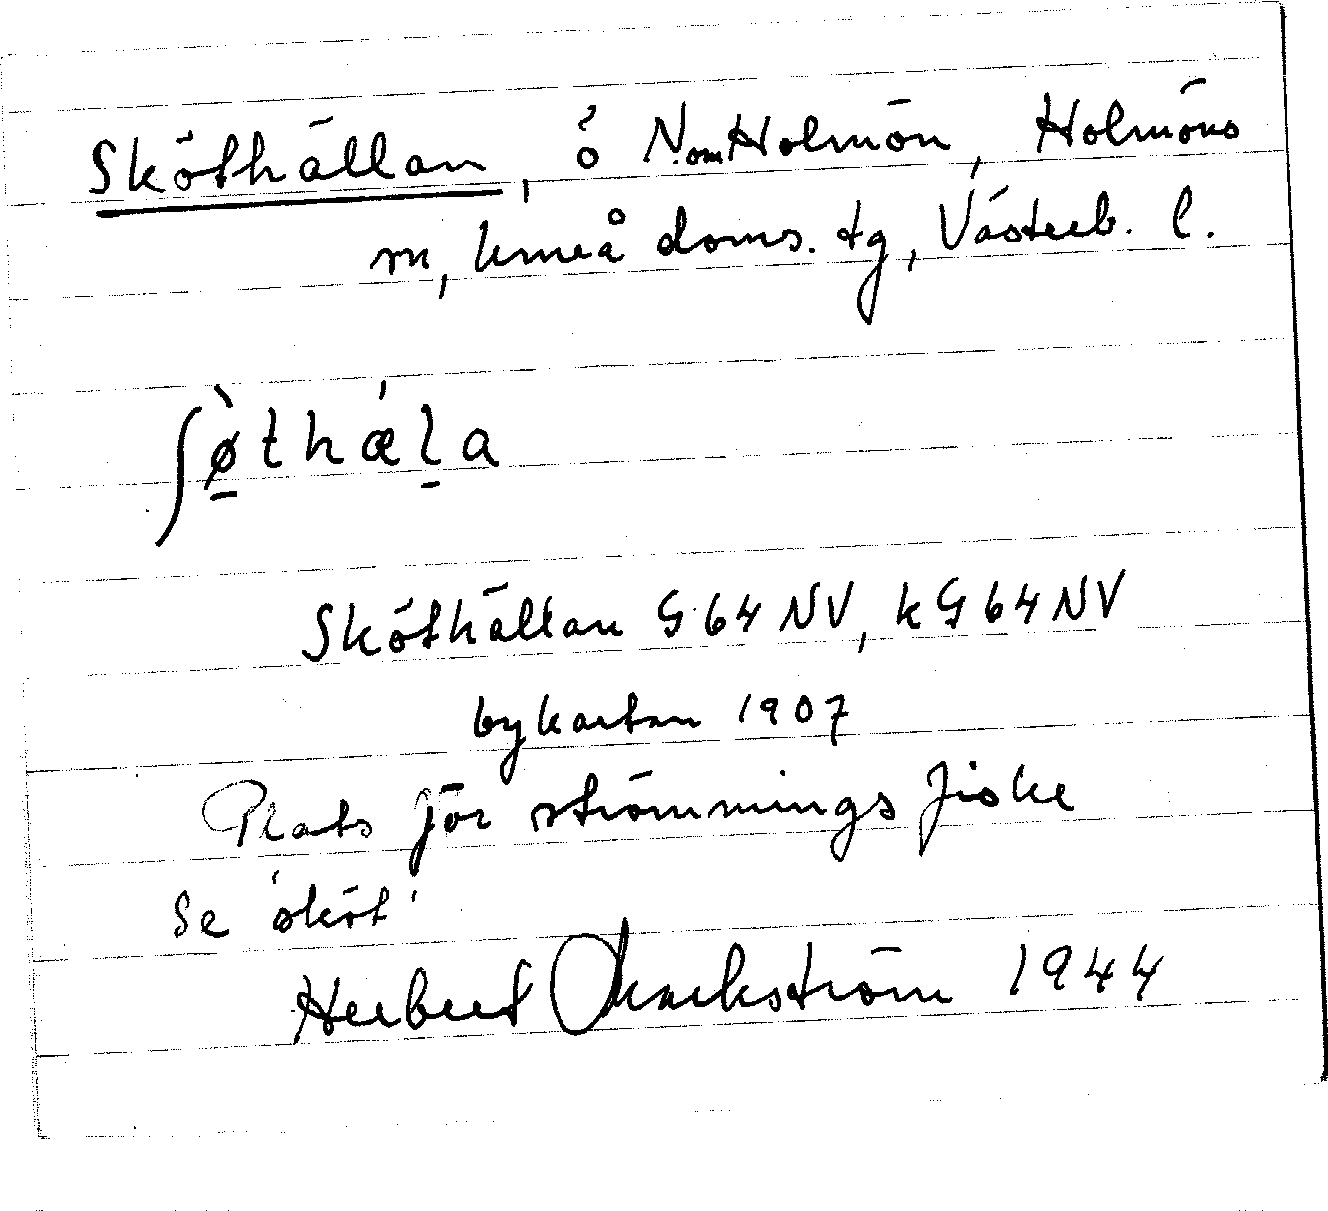 Sköthällan, ö N.omHolmön, Holmöns
sn, Umeå doms. tg, Västerb. l.
ʃø̠̀thǽl̠a
Sköthällan G 64 NV, k G 64 NV
bykartan 1907
Plats för strömmingsfiske
Se 'sköt'
Herbert 1944